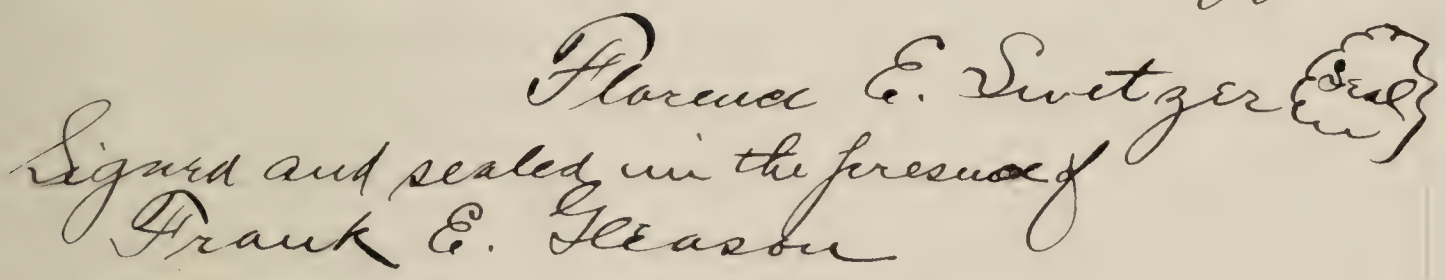 Florence E. Switzer Seal
Signed and sealed in the presence of
Frank E. Gleason